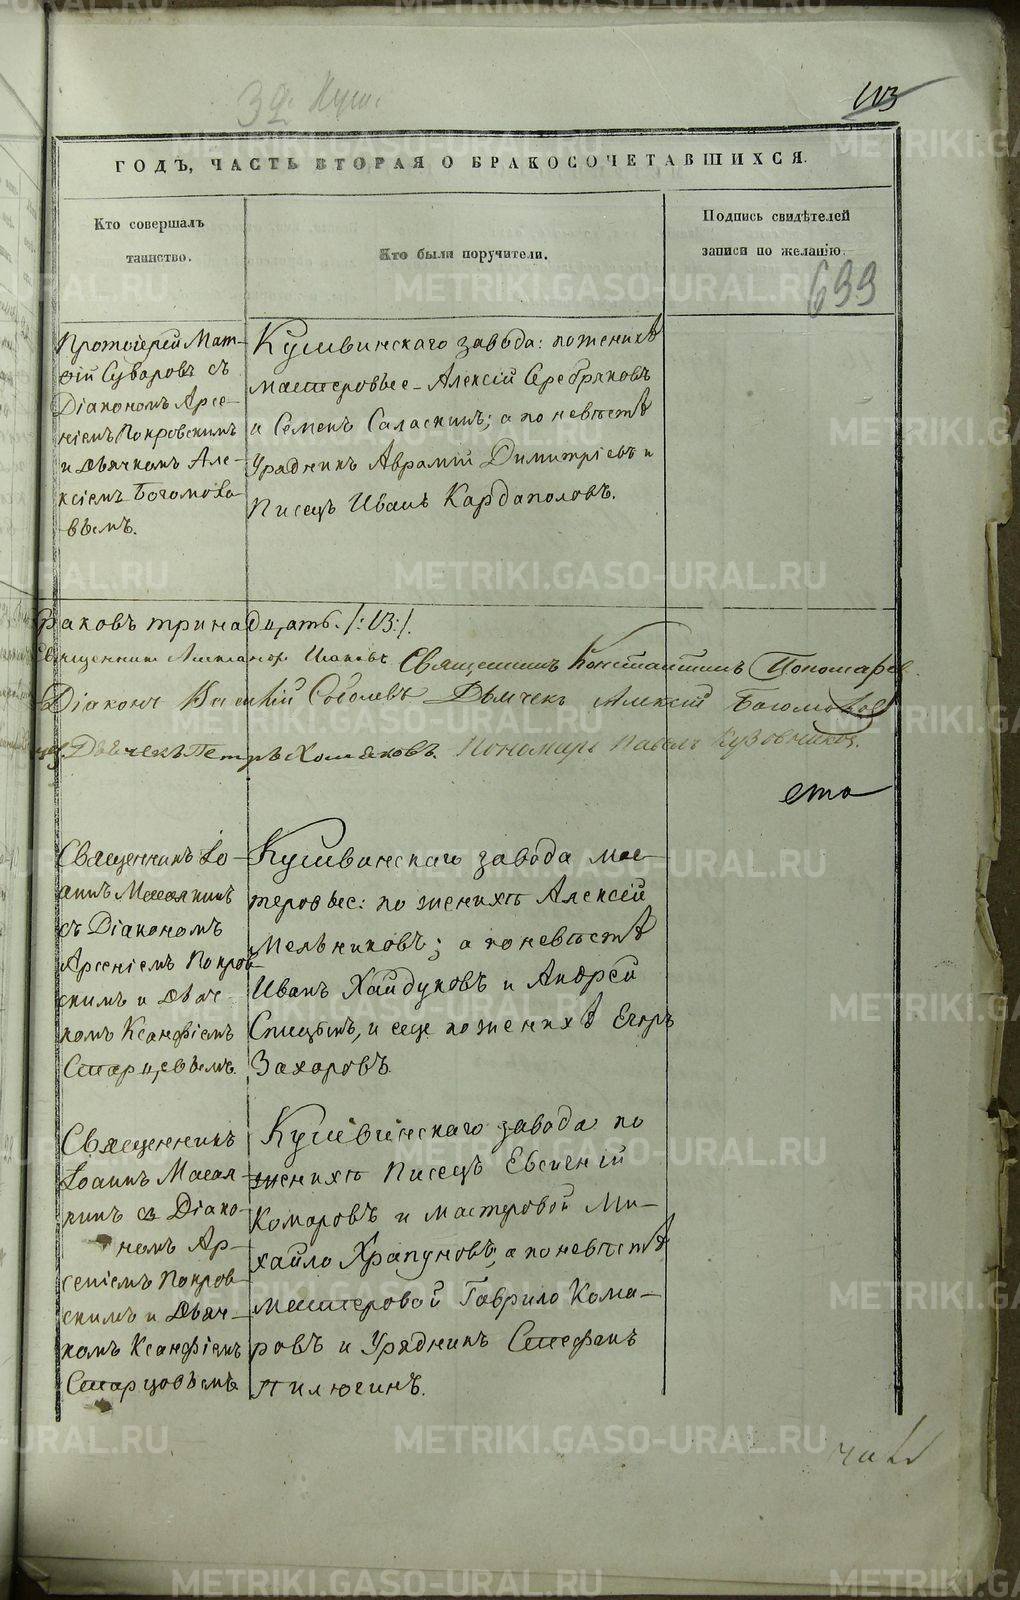 113
ГОДЪ, ЧАСТЬ ВТОРАЯ О БРАКОСОЧЕТАВШИХСЯ.
Кто совершалъ
таинство.
Кто были поручители.
Подпись свидѣтелей
записи по желанію.
699
Протоіерей Мат-
ѳій Суваровъ съ
Діакономъ Арсе-
ніемъ Покровскимъ
и дьячкомъ Але-
ксіемъ Богомоло-
вымъ.
Кушвинскаго завода: по женихѣ
мастеровые - Алексій Серебряковъ
и Семенъ Саласкинъ; а по невѣстѣ
Урядникъ Аврамій Димитріевъ и
Писецъ Иванъ Кардаполовъ.
браковъ тринадцать /:13:/.
Священникъ Александръ Священникъ Константинъ Пономаревъ
Діаконъ Василій Соболевъ Дьячекъ Алексій Богомолов
Дьячекъ Петръ Хомяковъ. Пономарь Павелъ Кузовников.
сто
Священникъ Іо-
аннъ Масалкинъ
съ Діакономъ
Арсеніемъ Покров-
скимъ и дьяч-
комъ Ксанфіемъ
Старцевымъ.
Кушвинскаго завода мас-
теровые: по женихѣ Алексій
Мельниковъ; а по невѣстѣ
Иванъ Хайдуковъ и Андрей
Спицынъ, и еще по женихѣ Егоръ
Захаровъ.
Священникъ
Іоаннъ Масал-
кинъ съ Діако-
номъ Ар-
сеніемъ Покров-
скимъ и Дьяч-
комъ Ксанфіемъ
Старцовымъ
Кушвинскаго завода по
женихѣ Писецъ Евгеній
Комаровъ и мастеровой Ми-
хайло Храпуновъ; а по невѣстѣ
мастеровой Гаврило Кома-
ровъ и Урядникъ Стефанъ
Пилюгинъ.
METRIKI.GASO-URAL.RU